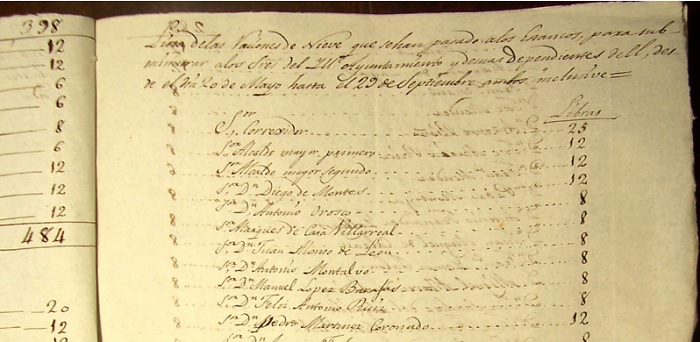 398
12
12
6
6
8
6
12
12
12
484
20
12
12
Lista de las raciones de Nieve que se han pasado a los Francos, para sub-
ministrar a los Sres del Ill.e Ayuntamiento y demas Dependientes de el, des-
de el dia 20 de Mayo hasta el 29 de Septiembre ambos inclusive=
Libras
S.or Corregidor 25
S.or Alcalde mayor primero 12
S.or Alcalde mayor segundo 12
S.or D.n Diego de Montes 12
S.or D.n Antonio Orosco 8
S.or Marques de Casa Villarreal 8
S.or D.n Juan Alonso de Leon 8
S.or D.n Antonio Montalvo 8
S.or D.n Manuel Lopez Barajas 8
S.or D.n Felix Antonio Ruiz 8
S.or D.n Pedro Martinez Coronado 12
8